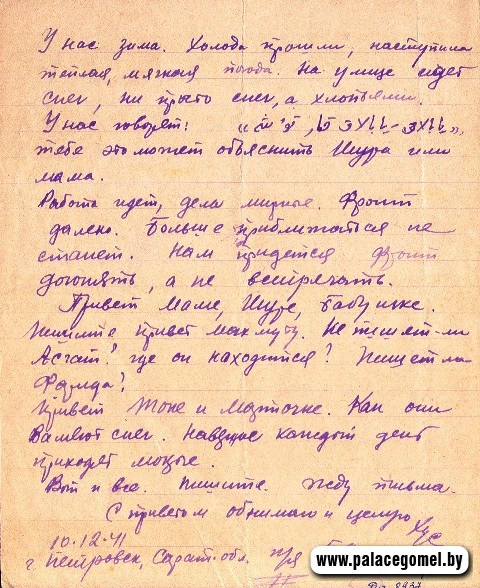 У нас зима. Холода прошли, наступила
теплая, мягкая погода. На улице идет
снег, ни просто снег, а хлопьями.
У нас говорят:
тебе это может объяснить Шура или
мама.
Работа идет, дела мирные. Фронт
далеко. Больше приближаться не
станет. Нам придется фронт
догонять, а не встречать.
Привет Маме, Шуре, Бабушке.
Пишите привет Махмуту. Не пишет-ли
Асгат? где он находится? Пишет ли
Фарида?
Привет Тоне и Марточке. Как они
снег. Наверное каждый день
приходят мокрые.
Вот и все. Пишите. Жду письма.
С приветом обнимаю и целую Хус
10.12.41
г. Петровск, Сарат. обл. п/я
www.palacegomel.by